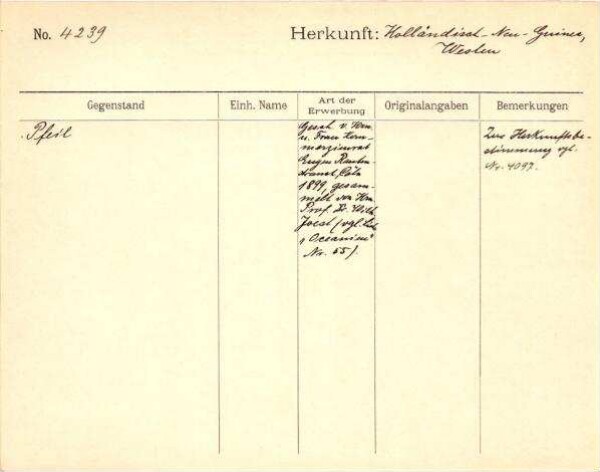 No. 4239
Herkunft: Holländisch-Neu-Guinea,
Westen
Gegenstand
Einh. Name
Art der
Erwerbung
Originalangaben
Bemerkungen
Pfeil
Gesch. v. Hrn
u. Frau Kom-
merzienrat
Eugen Rauten-
strauch, Cöln
1899, gesam-
melt von Hrn
Prof. Dr. Wilh.
Joest (vgl.
"Oceanien"
Nr. 55).
Zur Herkunftsbe-
stimmung vgl.
Nr. 4097.